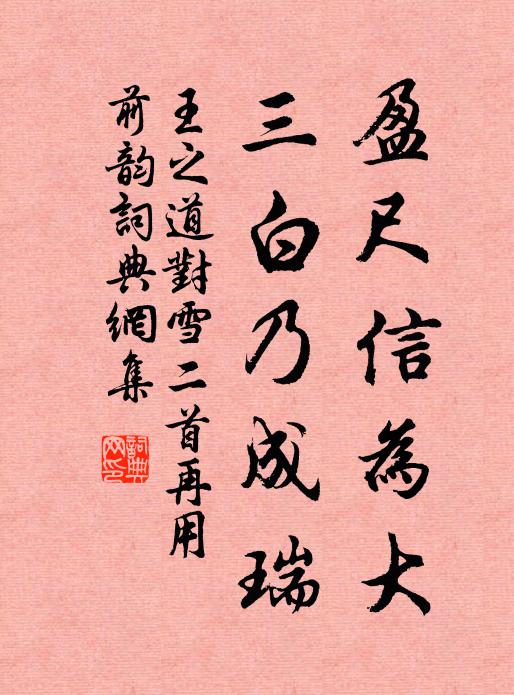 盈尺信為大
三白乃成瑞
王之道對雪二首再用
前韵詞典網集
詞典網印